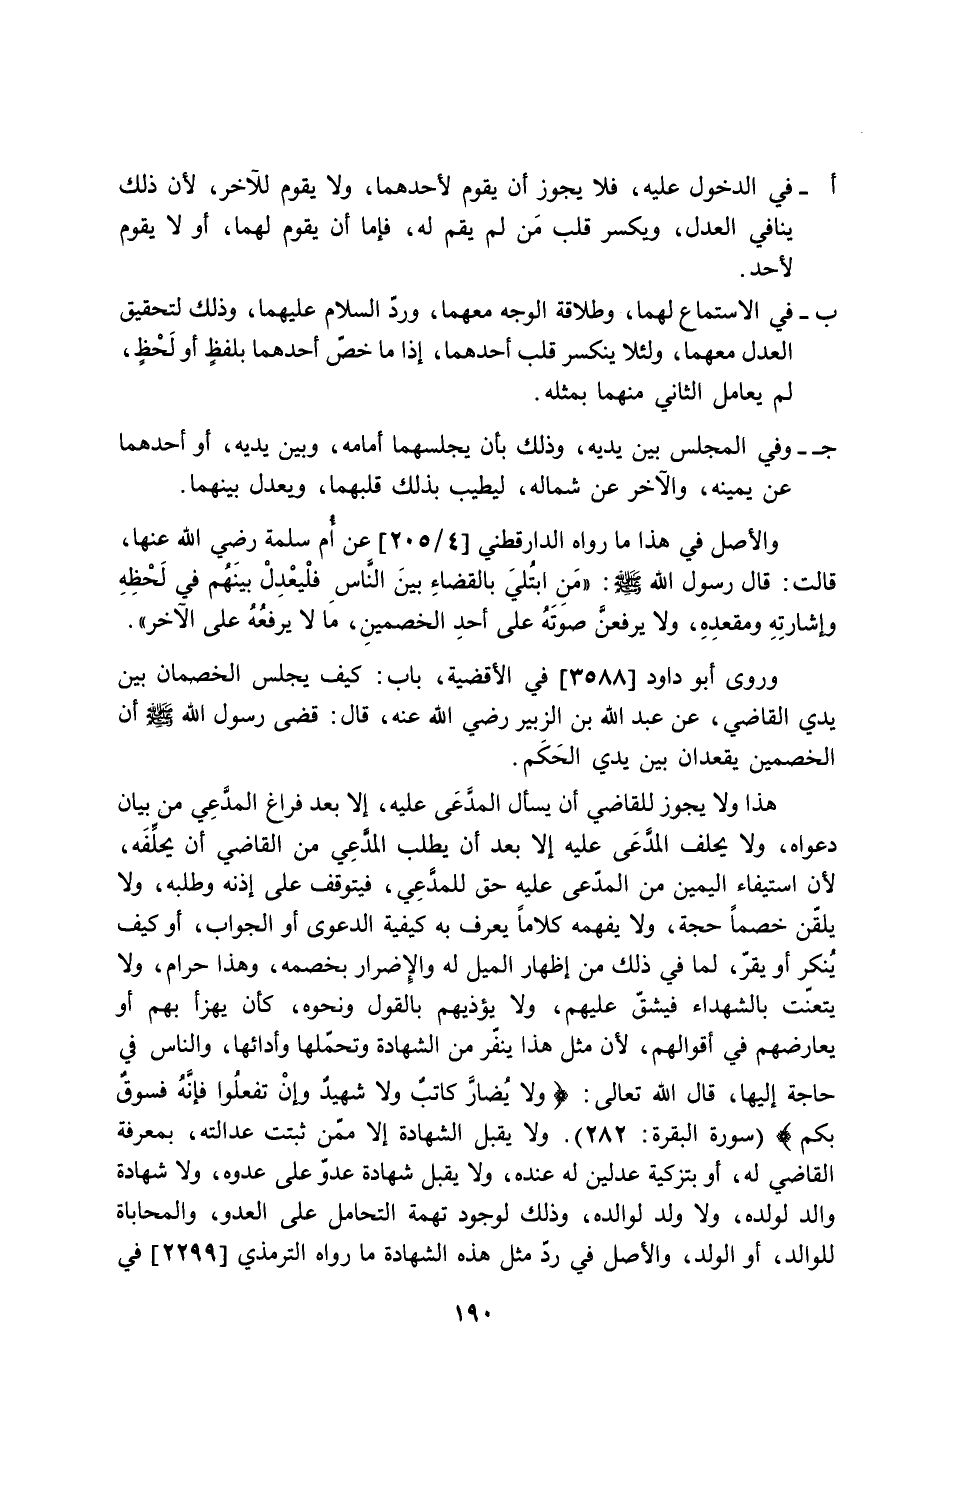 أ ـ في الدخول عليه، فلا يجوز أن يقوم لأحدهما، ولا يقوم للآخر، لأن ذلك
ينافي العدل، ويكسر قلب مَن لم يقم له، فإما أن يقوم لهما، أو لا يقوم
لأحد.
ب ـ في الاستماع لهما، وطلاقة الوجه معهما، وردّ السلام عليهما، وذلك لتحقيق
العدل معهما، ولئلا ينكسر قلب أحدهما، إذا ما خصّ أحدهما بلفظٍ أو لَحْظٍ،
لم يعامل الثاني منهما بمثله.
جـ ـ وفي المجلس بين يديه، وذلك بأن يجلسهما أمامه، وبين يديه، أو أحدهما
عن يمينه، والآخر عن شماله، ليطيب بذلك قلبهما، ويعدل بينهما.
والأصل في هذا ما رواه الدارقطني [٢٠٥/٤] عن أُم سلمة رضي الله عنها،
قالت: قال رسول الله ﷺ: «مَن ابتُليَ بالقضاءِ بينَ النَّاسِ فلْيعْدِلْ بينَهُم في لَحْظِهِ
وإشارتِهِ ومقعدِهِ، ولا يرفعنَّ صوتَهُ على أحدِ الخصمينِ، مَا لا يرفعُهُ على الآخر».
وروى أبو داود [٣٥٨٨] في الأقضية، باب: كيف يجلس الخصمان بين
يدي القاضي، عن عبد الله بن الزبير رضي الله عنه، قال: قضى رسول الله ﷺ أن
الخصمين يقعدان بين يدي الحَكَم.
هذا ولا يجوز للقاضي أن يسأل المدَّعَى عليه، إلا بعد فراغ المدَّعِي من بيان
دعواه، ولا يحلف المدَّعَى عليه إلا بعد أن يطلب المدَّعِي من القاضي أن يحلِّفَه،
لأن استيفاء اليمين من المدّعى عليه حق للمدَّعِي، فيتوقف على إذنه وطلبه، ولا
يلقّن خصماً حجة، ولا يفهمه كلاماً يعرف به كيفية الدعوى أو الجواب، أو كيف
يُنكر أو يقرّ، لما في ذلك من إظهار الميل له والإضرار بخصمه، وهذا حرام، ولا
يتعنّت بالشهداء فيشقّ عليهم، ولا يؤذيهم بالقول ونحوه، كأن يهزأ بهم أو
يعارضهم في أقوالهم، لأن مثل هذا ينفّر من الشهادة وتحمّلها وأدائها، والناس في
حاجة إليها، قال الله تعالى: ﴿ولا يُضارَّ كاتبٌ ولا شهيدٌ وإنْ تفعلُوا فإنَّهُ فسوقٌ
بكم﴾ (سورة البقرة: ٢٨٢). ولا يقبل الشهادة إلا ممّن ثبتت عدالته، بمعرفة
القاضي له، أو بتزكية عدلين له عنده، ولا يقبل شهادة عدوّ على عدوه، ولا شهادة
والد لولده، ولا ولد لوالده، وذلك لوجود تهمة التحامل على العدو، والمحاباة
للوالد، أو الولد، والأصل في ردّ مثل هذه الشهادة ما رواه الترمذي [٢٢٩٩] في
١٩٠